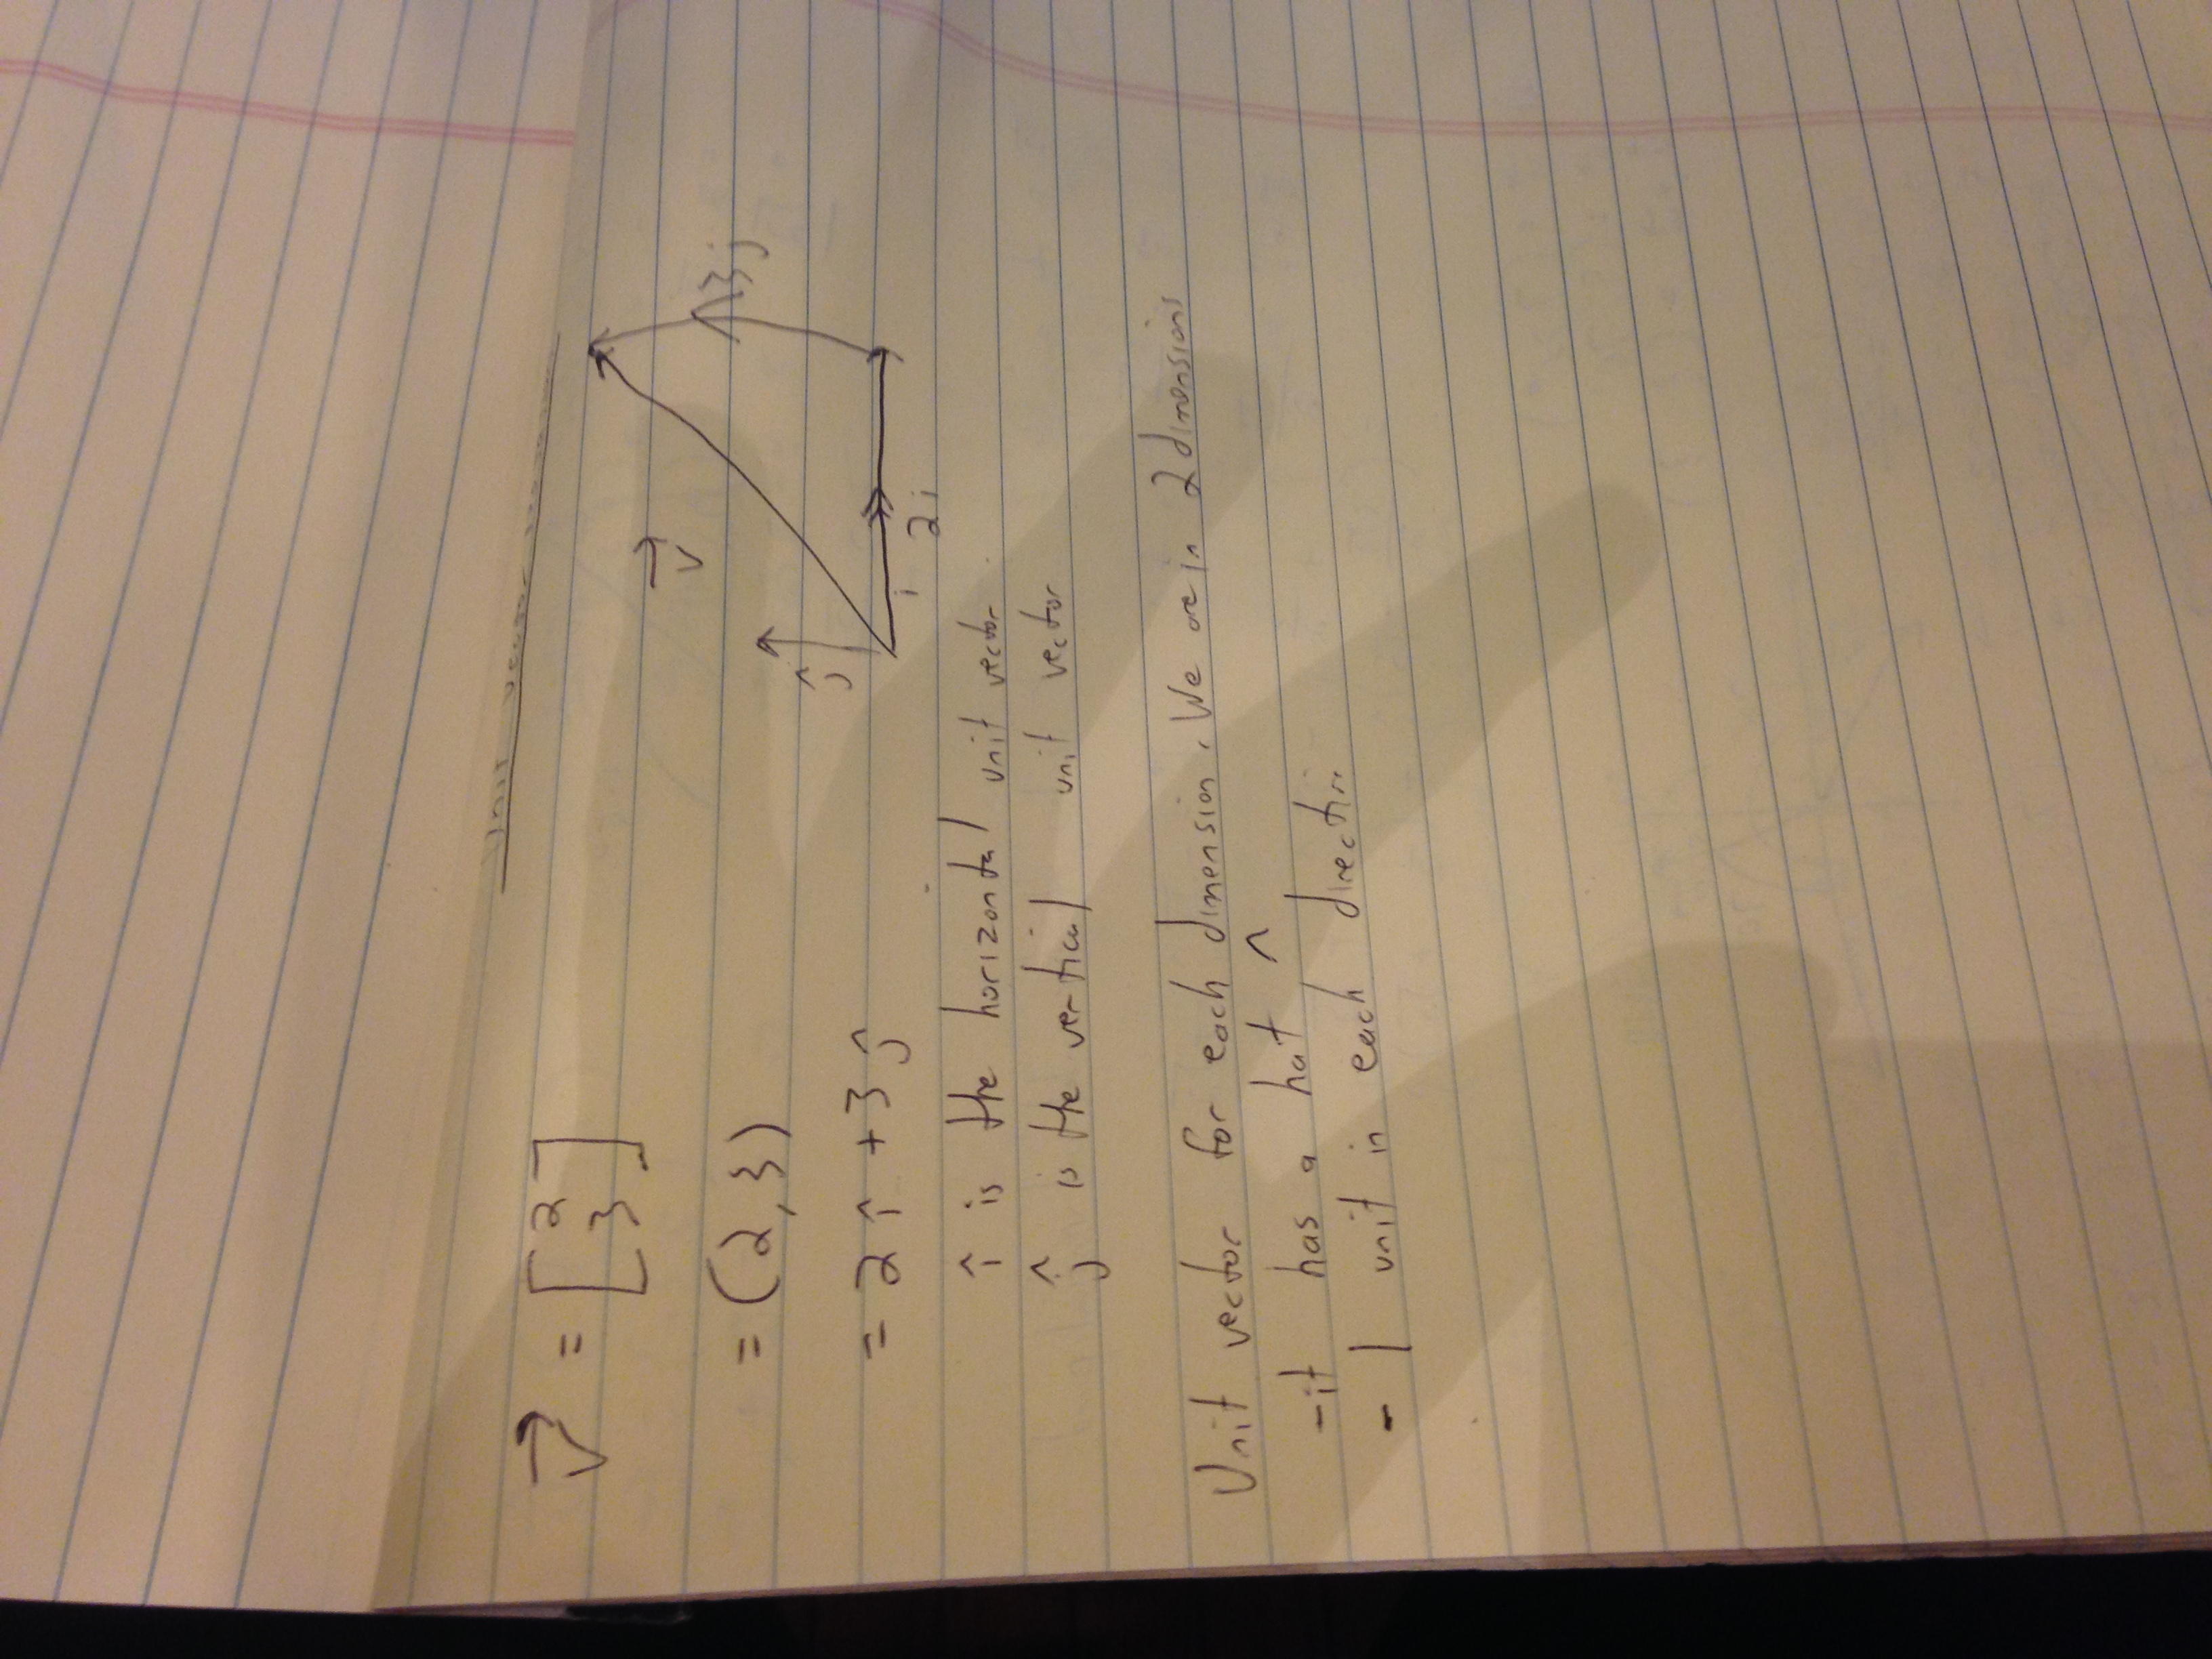 Unit vector
v⃗ = [2
3]
= (2,3)
= 2î + 3ĵ
v⃗
ĵ
i 2i
3j
î is the horizontal unit vector
ĵ is the vertical unit vector
Unit vector for each dimension. We are in 2 dimensions
- it has a hat ^
- 1 unit in each